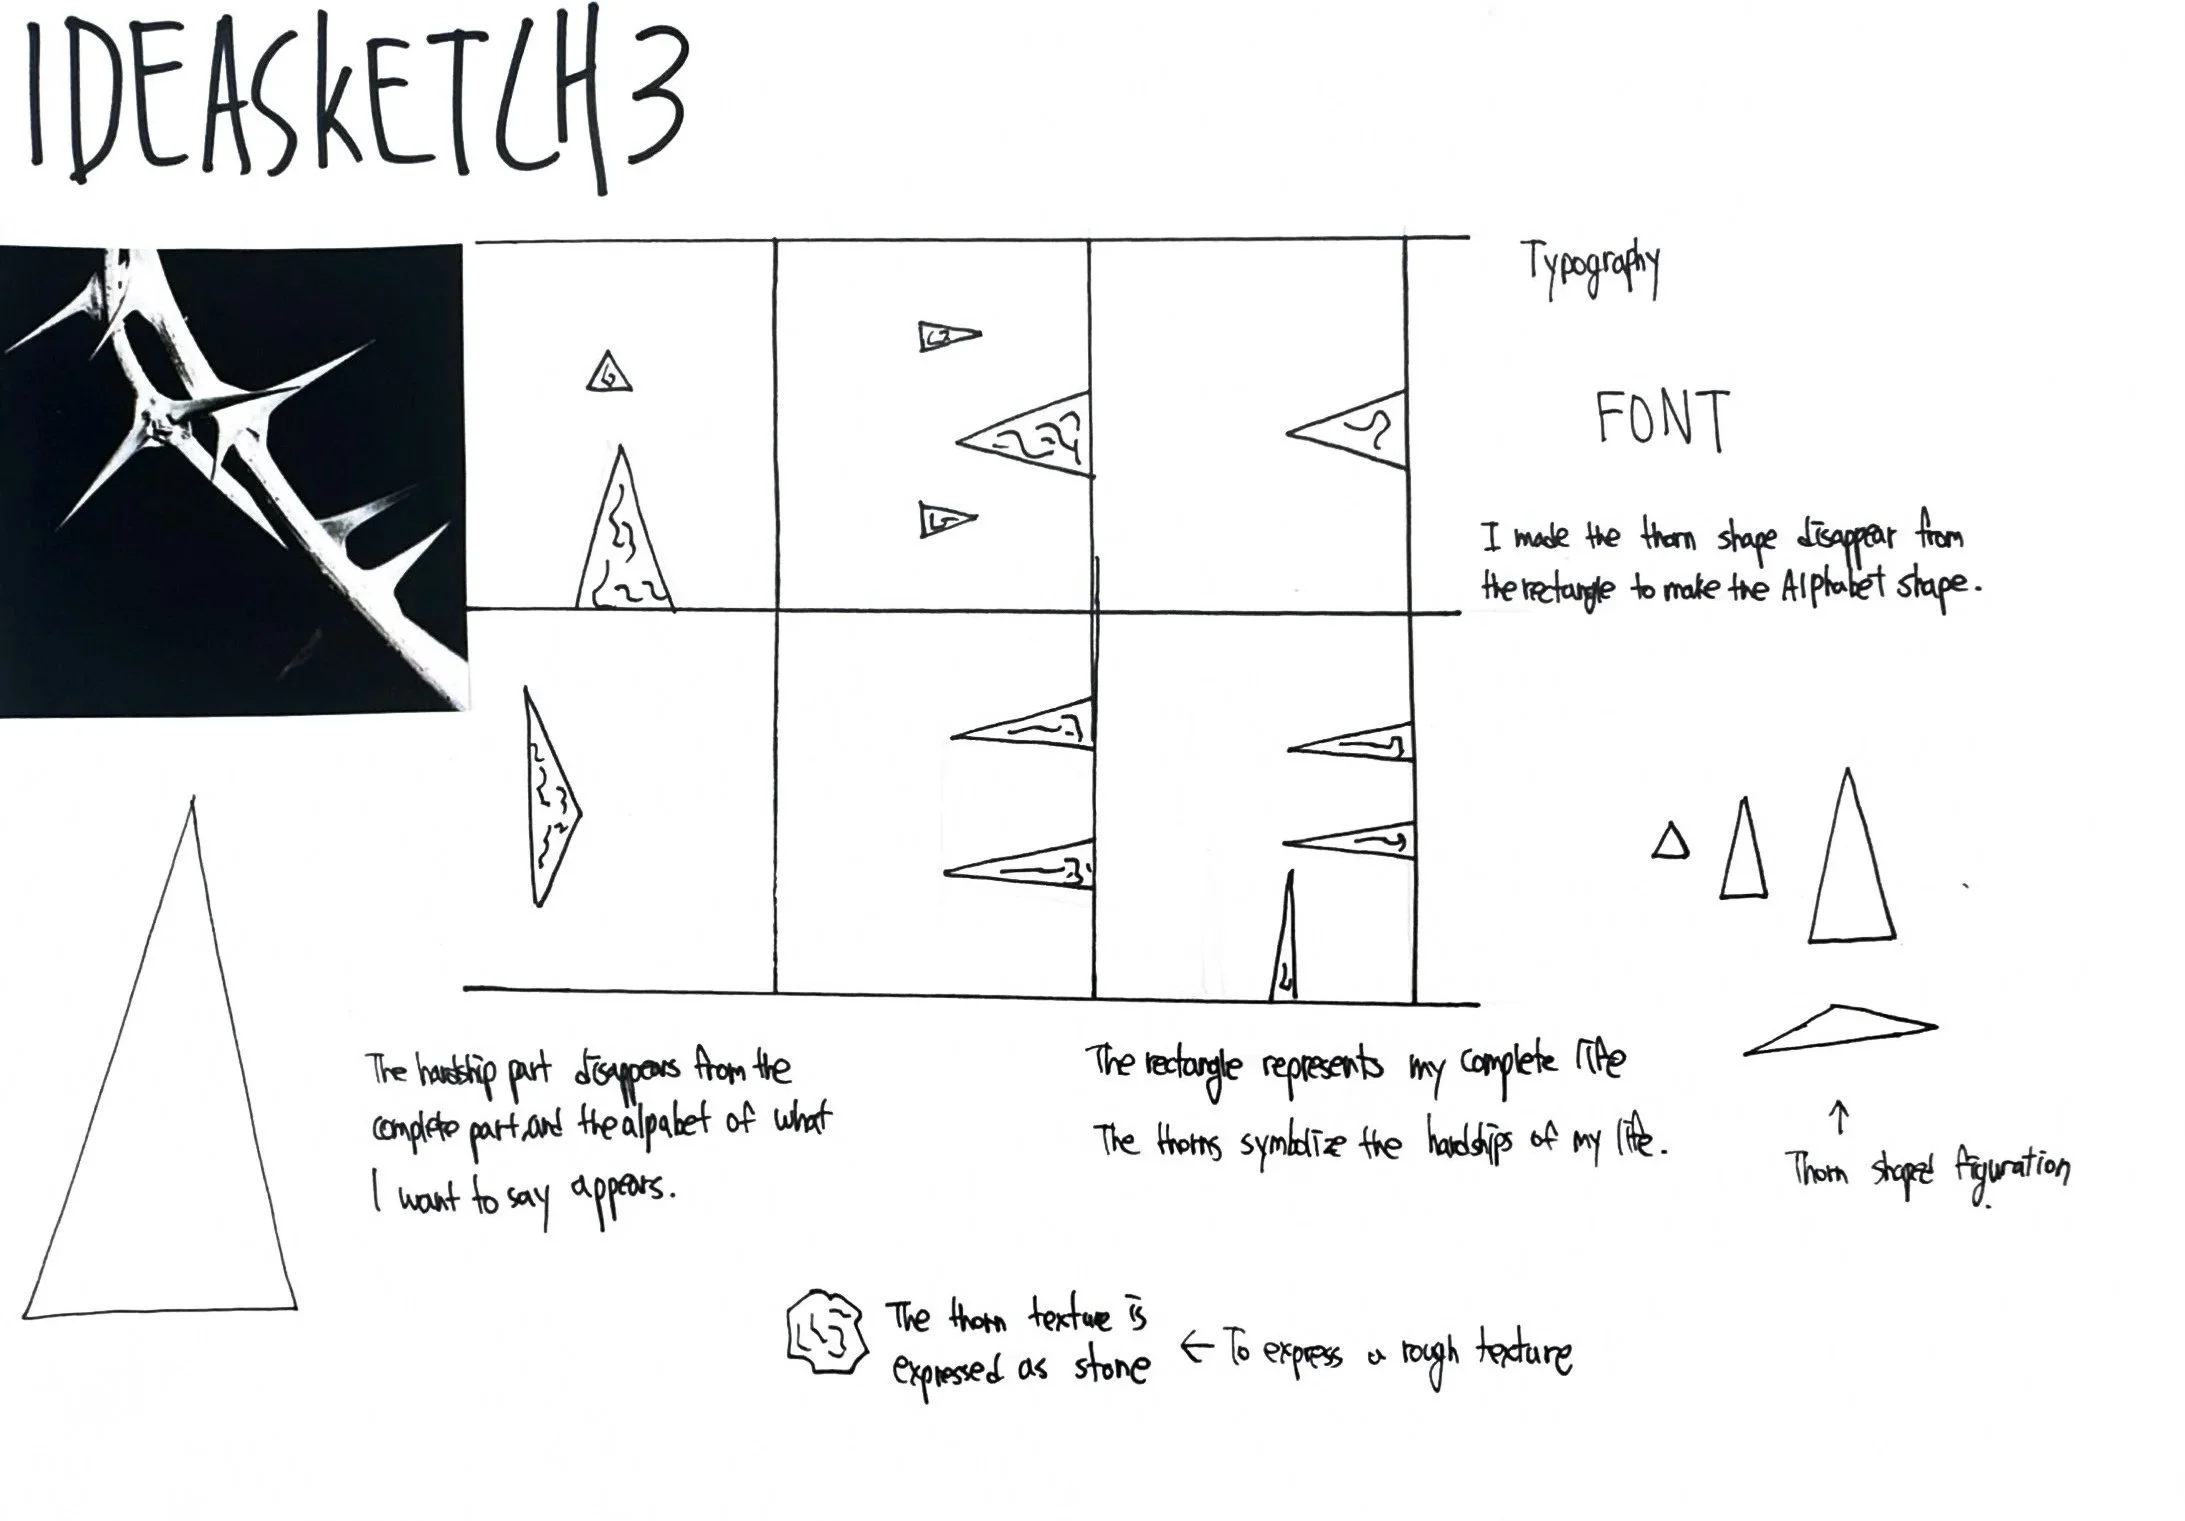 IDEASkETCH 3
Typography
FONT
I made the thorn shape disappear from
the rectangle to make the Alphabet shape.
The hardship part disappears from the
complete part, and the alpabet of what
I want to say appears.
The rectangle represents my complete life
The thorns symbolize the hardships of my life.
↑
Thorn shaped figuration.
The thorn texture is
expressed as stone
← To express a rough texture